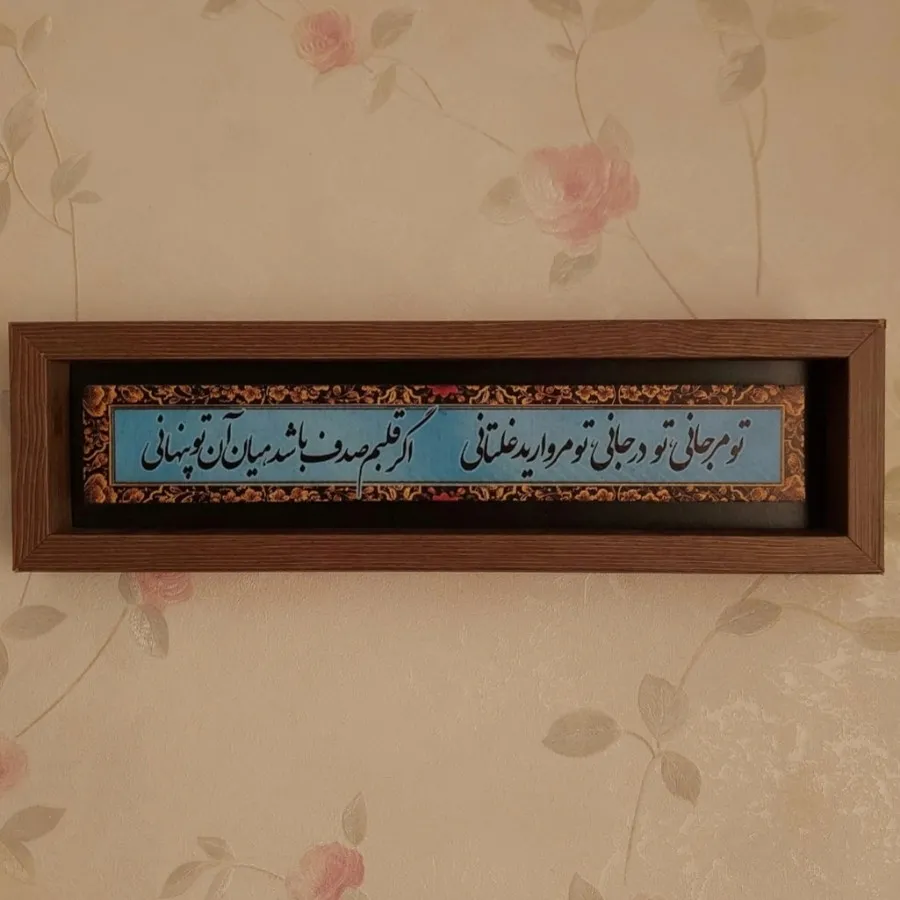 تو مرجانی، تو در جانی، تو مروارید غلتانی اگر قلبم صدف باشد میان آن تو پنهانی